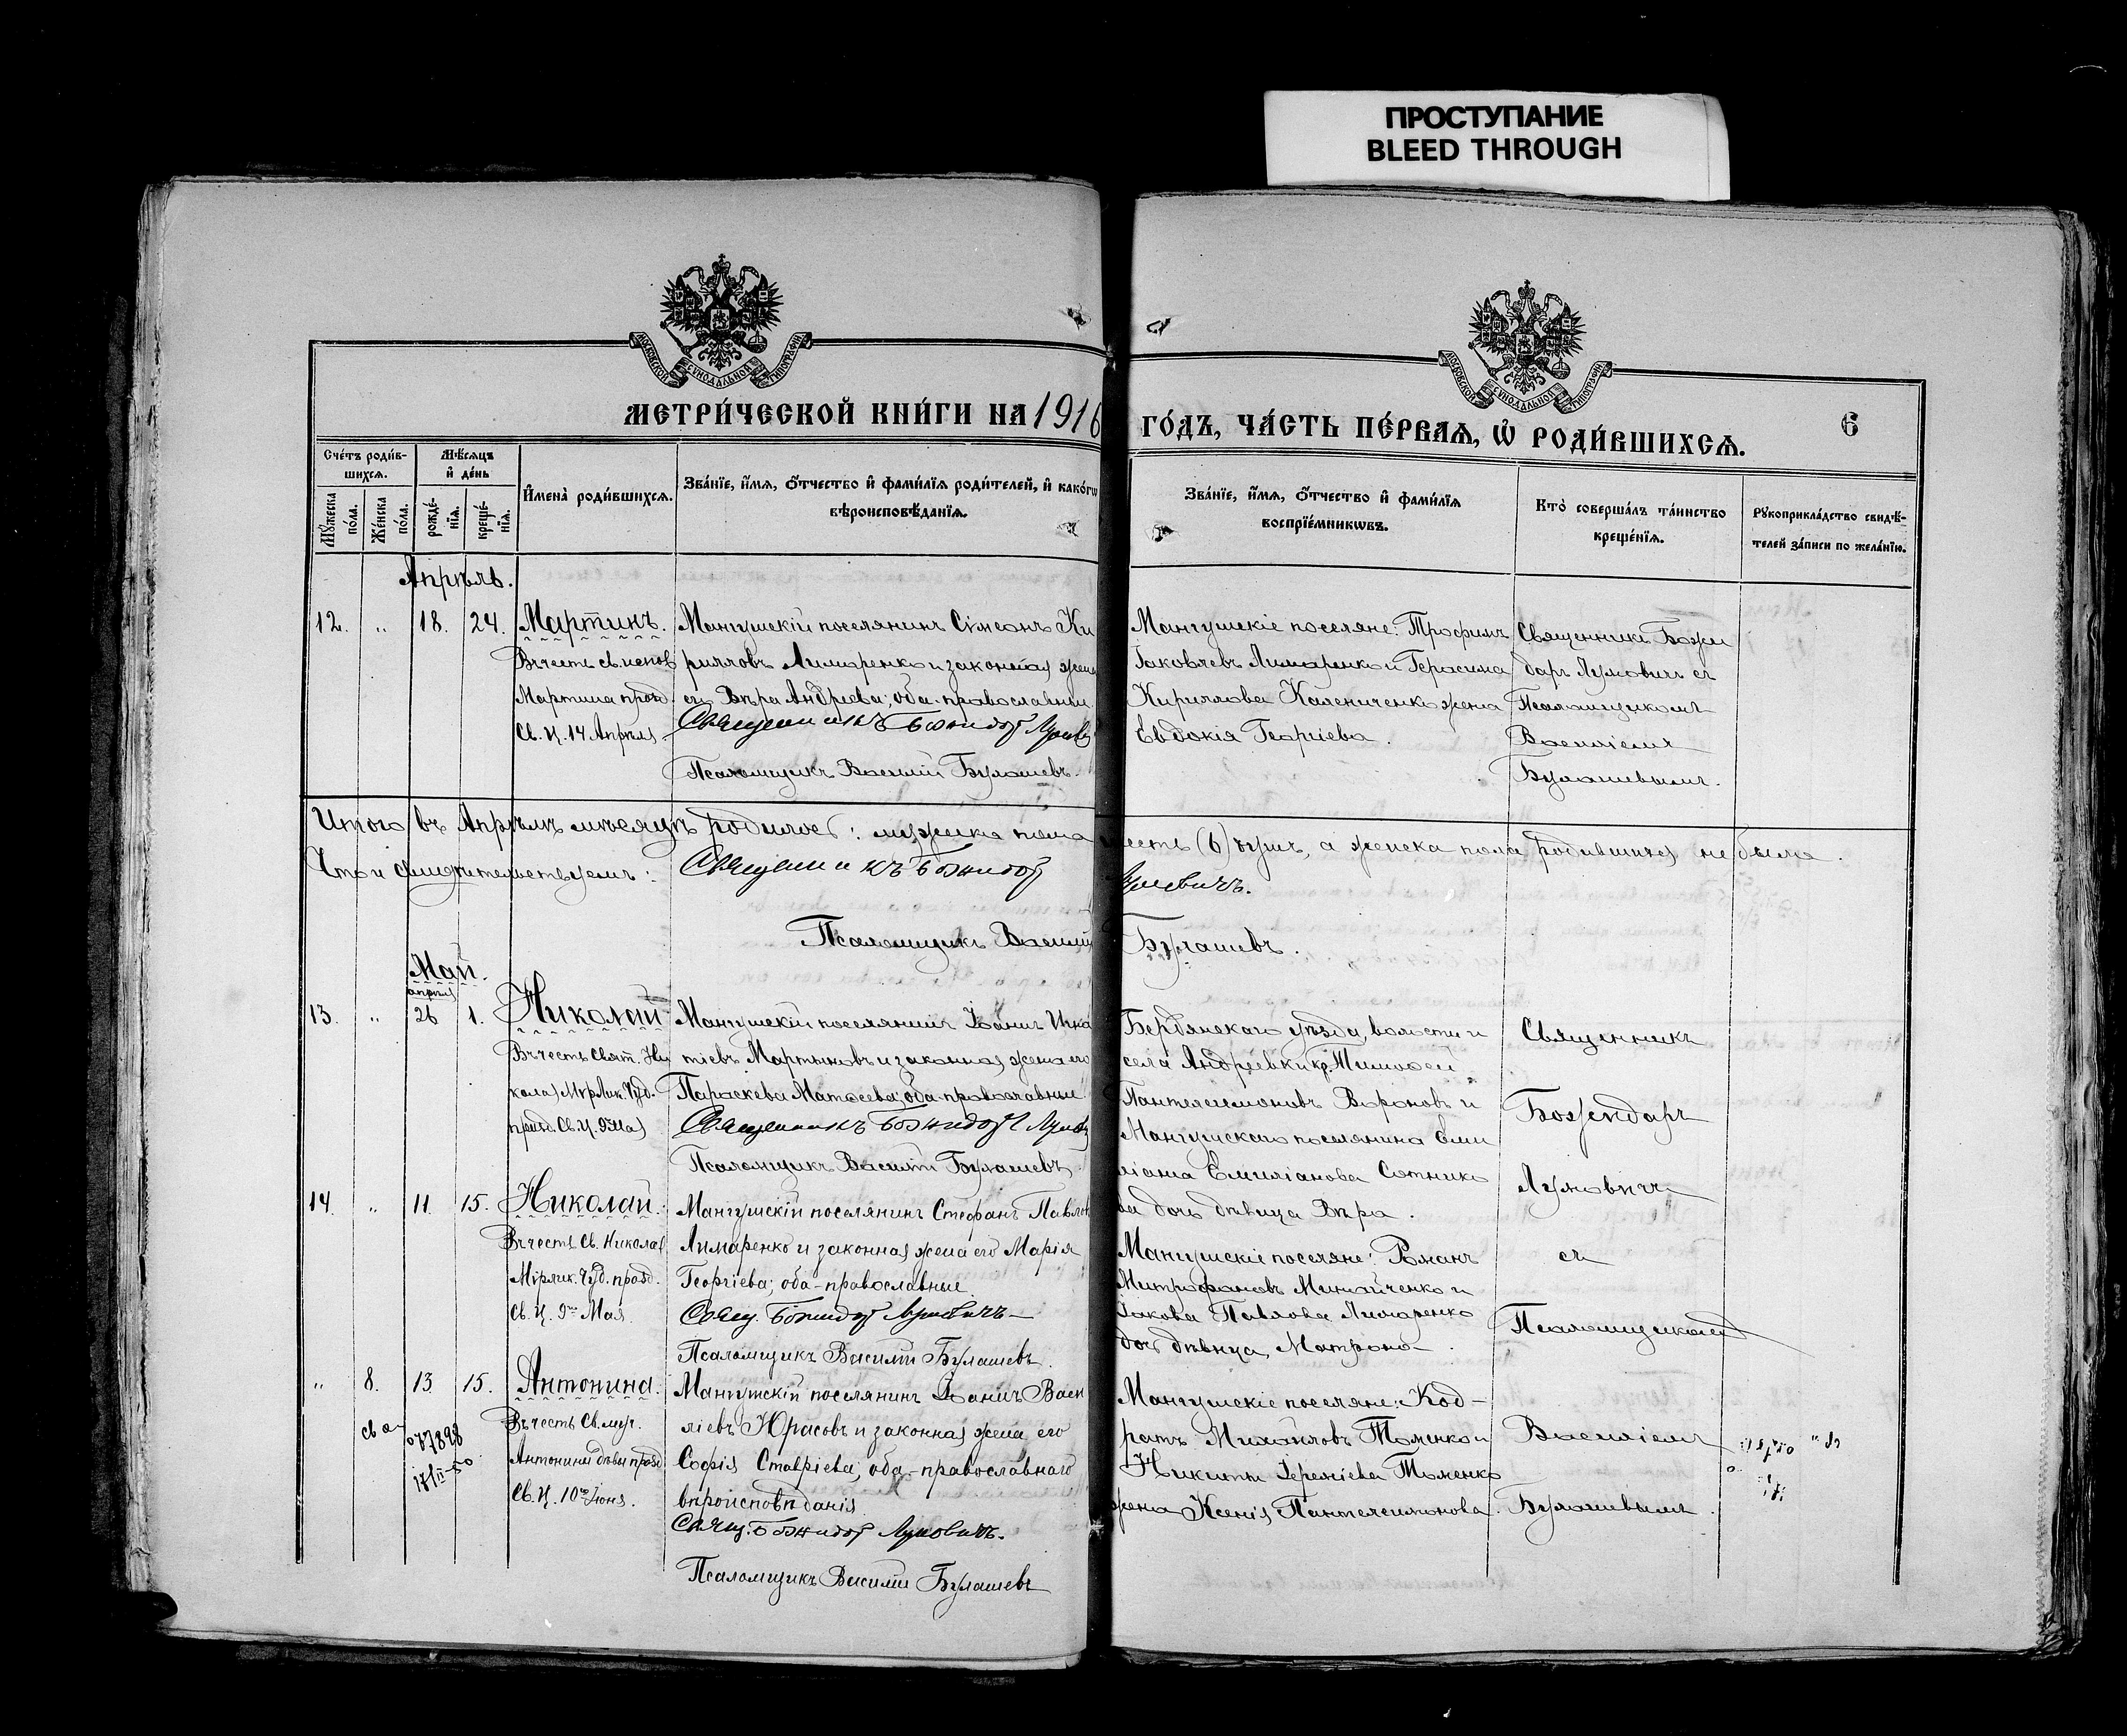 ПРОСТУПАНИЕ
BLEED THROUGH
МОСКОВСКОЙ СѴНОДАЛЬНОЙ ТИПОГРАФІИ
МОСКОВСКОЙ СѴНОДАЛЬНОЙ ТИПОГРАФІИ
МЕТРИ́ЧЕСКОЙ КНИ́ГИ НА 1916
ГО́ДЪ, ЧА́СТЬ ПЕ́РВАѦ, Ѽ РОДИ́ВШИХСѦ.
6
Сче́тъ роди́в-
шихся.
Мѣ́сяцъ
и҆ де́нь
Мꙋ́жеска
по́ла.
Же́нска
по́ла.
рожде́-
нїя.
креще́-
нїя.
И҆мена̀ роди́вшихся.
Зва́нїе, и҆́мя, ѻ҆́тчество и҆ фами́лїя роди́телей, и҆ како́гѡ
вѣроисповѣ́данїя.
Зва́нїе, и҆́мя, ѻ҆́тчество и҆ фами́лїя
воспрїе́мникѡвъ.
Кто̀ соверша́лъ та́инство
креще́нїя.
Рꙋкоприкла́дство свидѣ́-
телей за́писи по жела́нїю.
Апрѣль.
12. „ 18. 24. Мартинъ.
Въ честь св. испов
Мартина празд.
Св. Ц. 14 Апрѣля
Мангушскій поселянинъ Сімеонъ Ки
рилловъ Лимаренко и законная жена
его Вѣра Андреева; оба православные
Священникъ Божидаръ Лукови
Псаломщикъ Василій Булашевъ.
Мангушскіе поселяне: Трофимъ
Іаковлевъ Лимаренко и Герасима
Кириллова Калениченко жена
Евдокія Георгіева.
Священникъ Божи
даръ Луковичъ съ
Псаломщикомъ
Василіемъ
Булашевымъ.
Итого въ Апрѣлѣ мѣсяцѣ родилось: мужска пола
есть (6) душъ, а женска пола родившихся не было.
Что и свидѣтельствуемъ: Священникъ Божидаръ
Луковичъ.
Псаломщикъ Василій Булашевъ.
Май.
апрѣля
13. „ 26 1. Николай
Въ честь Свят. Ни
колая Мѵр Лик. Чуд.
празд. Св. Ц. 9 Мая
Мангушскій поселянинъ Іоаннъ Игна
тіевъ Мартыновъ и законная жена его
Параскева Матѳеева; оба православные
Священникъ Божидаръ Луков
Псаломщикъ Василій Булашевъ
Бердянскаго уѣзда, волости и
села Андреевки кр. Тимоѳей
Пантелеимоновъ Вороновъ и
Мангушскаго поселянина Еми
ліана Емиліанова Сотнико
ва дочь дѣвица Вѣра.
Священникъ
Божидаръ
Луковичъ
съ
Псаломщикомъ
Василіемъ
Булашевымъ.
14. „ 11. 15. Николай.
Въ честь Св. Николая
Мѵрлик. Чуд. празд.
Св. Ц. 9го Мая.
Мангушскій поселянинъ Стефанъ Павлов
Лимаренко и законная жена его Марія
Георгіева; оба-православные
Свящ. Божидаръ Луковичъ
Псаломщикъ Василій Булашевъ.
Мангушскіе поселяне: Романъ
Митрофановъ Минайченко и
Іакова Павлова Лимаренко
дочь дѣвица, Матрона.
„ 8. 13. 15. Антонина.
Въ честь Св. муч.
Антонины дѣвы празд
Св. Ц. 10го Іюня.
св о
077898
17/II-50
Мангушскій поселянинъ Іоаннъ Васи
ліевъ Юрасовъ и законная жена его
Софія Ставріева; оба-православнаго
вѣроисповѣданія
Свящ. Божидаръ Луковичъ.
Псаломщикъ Василій Булашевъ
Мангушскіе поселяне: Код-
ратъ Михайловъ Томенко и
Никиты Іереміева Томенко
жена Ксенія Пантелеимонова.